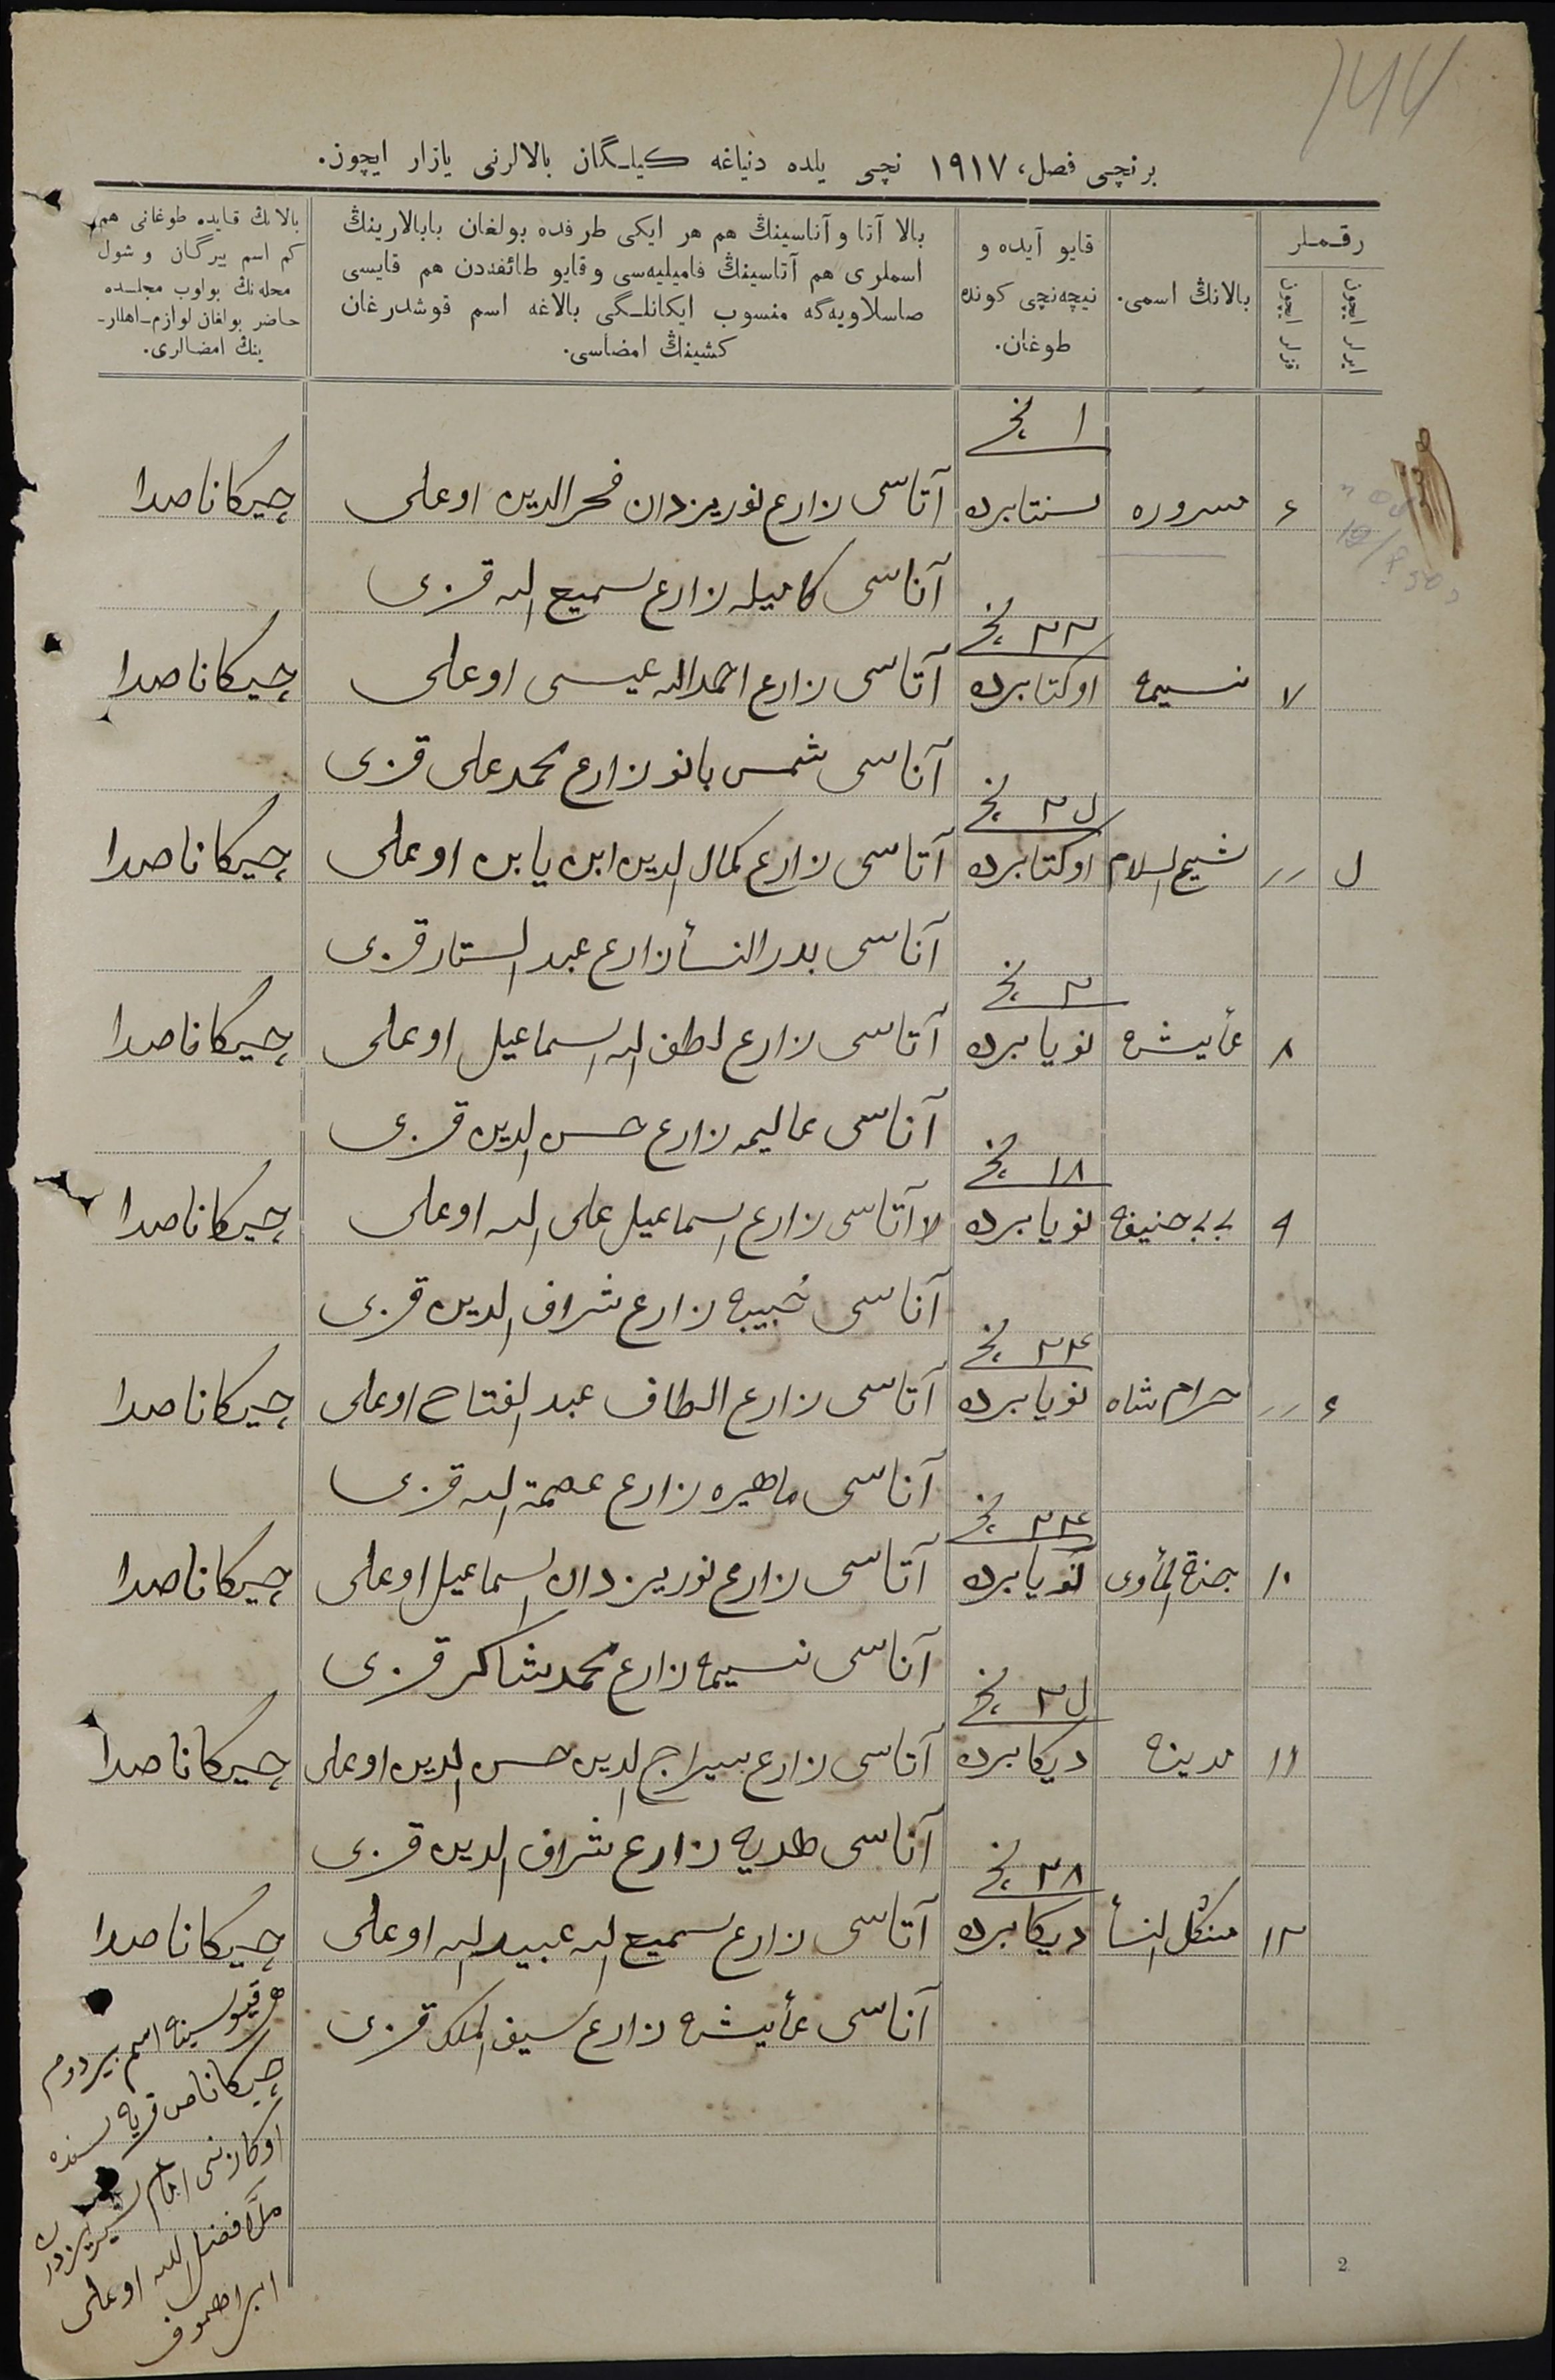 144
برنچی فصل، ١٩١٧ نچی یلده دنیاغه کیلگان بالالرنی یازار ایچون.
رقملر
ایرلر ایچون
قزلر ایچون
بالانڭ اسمی.
قایو آیده و
نیچه‌نچی کونده
طوغان.
بالا آتا و آناسینڭ هم هر ایکی طرفده بولغان بابالارینڭ
اسملری هم آتاسینڭ فامیلیه‌سی و قایو طائفه‌دن هم قایسی
صاسلاویه‌گه منسوب ایکانلگی بالاغه اسم قوشدرغان
کشینڭ امضاسی.
بالانڭ قایده طوغانی هم
کم اسم بیرگان و شول
محله‌نڭ بولوب مجلسده
حاضر بولغان لوازم اهللر-
ینڭ امضالری.
١ نچی
۶ سروره سنتابرده آتاسی زارع نوریزدان فخرالدین اوغلی چیکاناصدا
آناسی کامیله زارع سمیع الله قزی
٢٣ نچی
٧ نسیمه اوکتابرده آتاسی زارع احمدالله عیسی اوغلی چیکاناصدا
آناسی شمس بانو زارع محمدعلی قزی
٢٥ نچی
٥ // شیخ السلام اوکتابرده آتاسی زارع کمال الدین ابن یابن اوغلی چیکاناصدا
آناسی بدرالنسأ زارع عبدالستار قزی
٢ نچی
٨ عأیشه نویابرده آتاسی زارع لطف الله اسماعیل اوغلی چیکاناصدا
آناسی عالیمه زارع حسن الدین قزی
١٨ نچی
٩ بی بی حنیفه نویابرده آتاسی زارع اسماعیل علی الله اوغلی چیکاناصدا
آناسی نجیبه زارع شراف الدین قزی
٢٤ نچی
۶ // حرام شاه نویابرده آتاسی زارع الطاف عبدالفتاح اوغلی چیکاناصدا
آناسی ماهیره زارع عصمة الله قزی
٢٤ نچی
١٠ جنة المأوی نویابرده آتاسی زارع نوریزدان اسماعیل اوغلی چیکاناصدا
آناسی نسیمه زارع محمدشاکر قزی
٢٥ نچی
١١ مدینه دیکابرده آتاسی زارع سیراج الدین حسن الدین اوغلی چیکاناصدا
آناسی هدیه زارع شراف الدین قزی
٢٨ نچی
١٢ منکل النسأ دیکابرده آتاسی زارع سمیع الله عبیدالله اوغلی چیکاناصدا
آناسی عأیشه زارع سیف الملک قزی
هر قیوسینه اسم بیردوم
چیکاناص قریه سنده
اوکازنی امام
ملا فضل الله اوغلی
ابراهموف
2